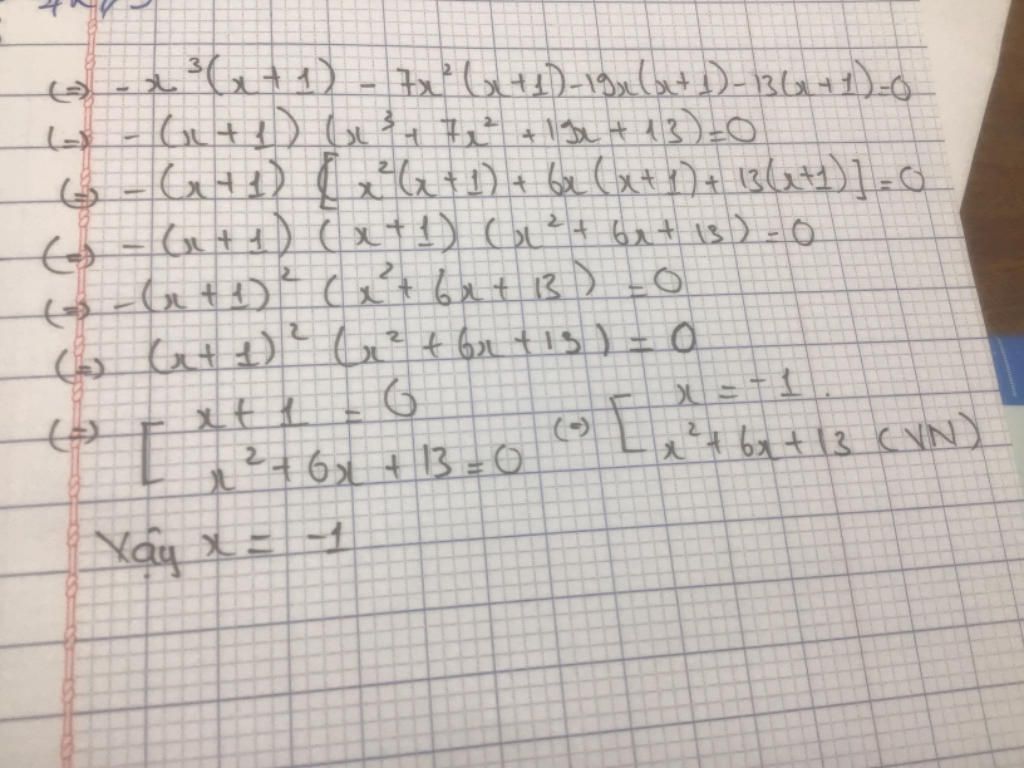 (=) - x³(x+1) - 7x²(x+1) - 19x(x+1) - 13(x+1) = 0
(=) - (x+1) (x³ + 7x² + 19x + 13) = 0
(=) - (x+1) [x²(x+1) + 6x(x+1) + 13(x+1)] = 0
(=) - (x+1) (x+1) (x² + 6x + 13) = 0
(=) - (x+1)² (x² + 6x + 13) = 0
(=) (x+1)² (x² + 6x + 13) = 0
(=) [ x + 1 = 0 (=) [ x = -1.
x² + 6x + 13 = 0 x² + 6x + 13 (VN)
Vậy x = -1